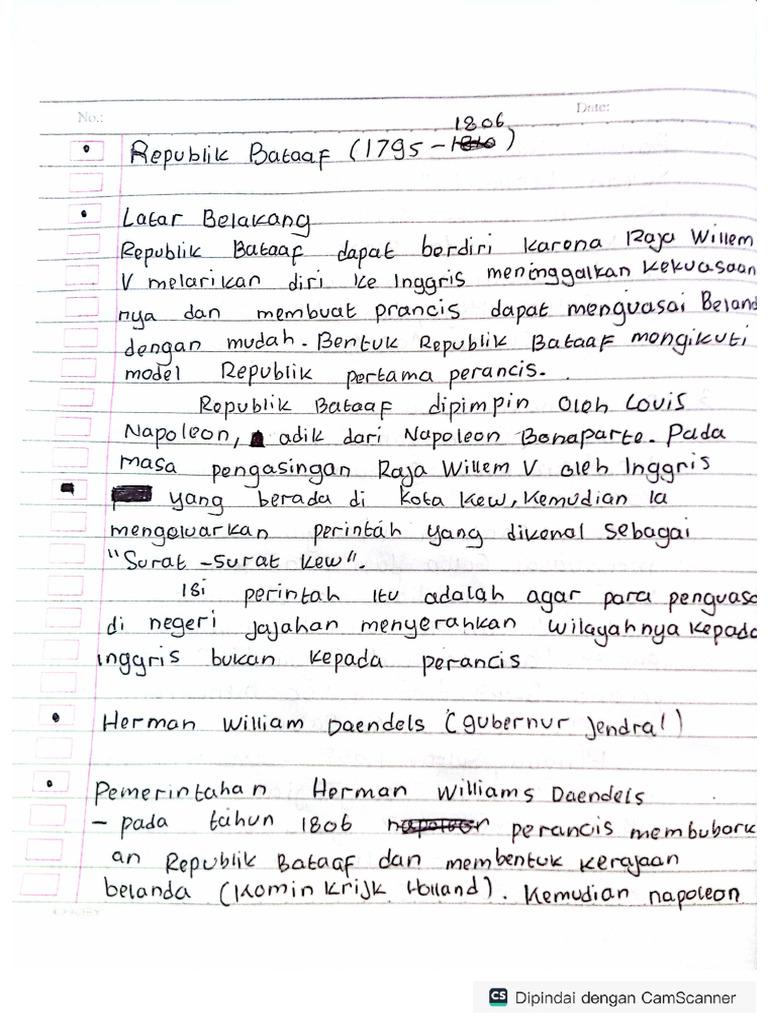 No.:
Date:
1806
Republik Bataaf (1795 - 1810)
Latar Belakang
Republik Bataaf dapat berdiri karena Raja Willem
V melarikan diri ke Inggris meninggalkan kekuasaan
nya dan membuat prancis dapat menguasai Beland
dengan mudah. Bentuk Republik Bataaf mengikuti
model Republik pertama perancis.
Republik Bataaf dipimpin oleh Louis
Napoleon, adik dari Napoleon Bonaparte. Pada
masa pengasingan Raja Willem V oleh Inggris
yang berada di kota kew, kemudian ia
mengeluarkan perintah yang dikenal sebagai
"Surat -surat kew".
Isi perintah itu adalah agar para penguasa
di negeri jajahan menyerahkan wilayahnya kepada
inggris bukan kepada perancis
Herman William Daendels (gubernur jendral)
Pemerintahan Herman Williams Daendels
- pada tahun 1806 napoleon perancis membubark
an Republik Bataaf dan membentuk kerajaan
belanda (Komin krijk Holland). Kemudian napoleon
CS Dipindai dengan CamScanner